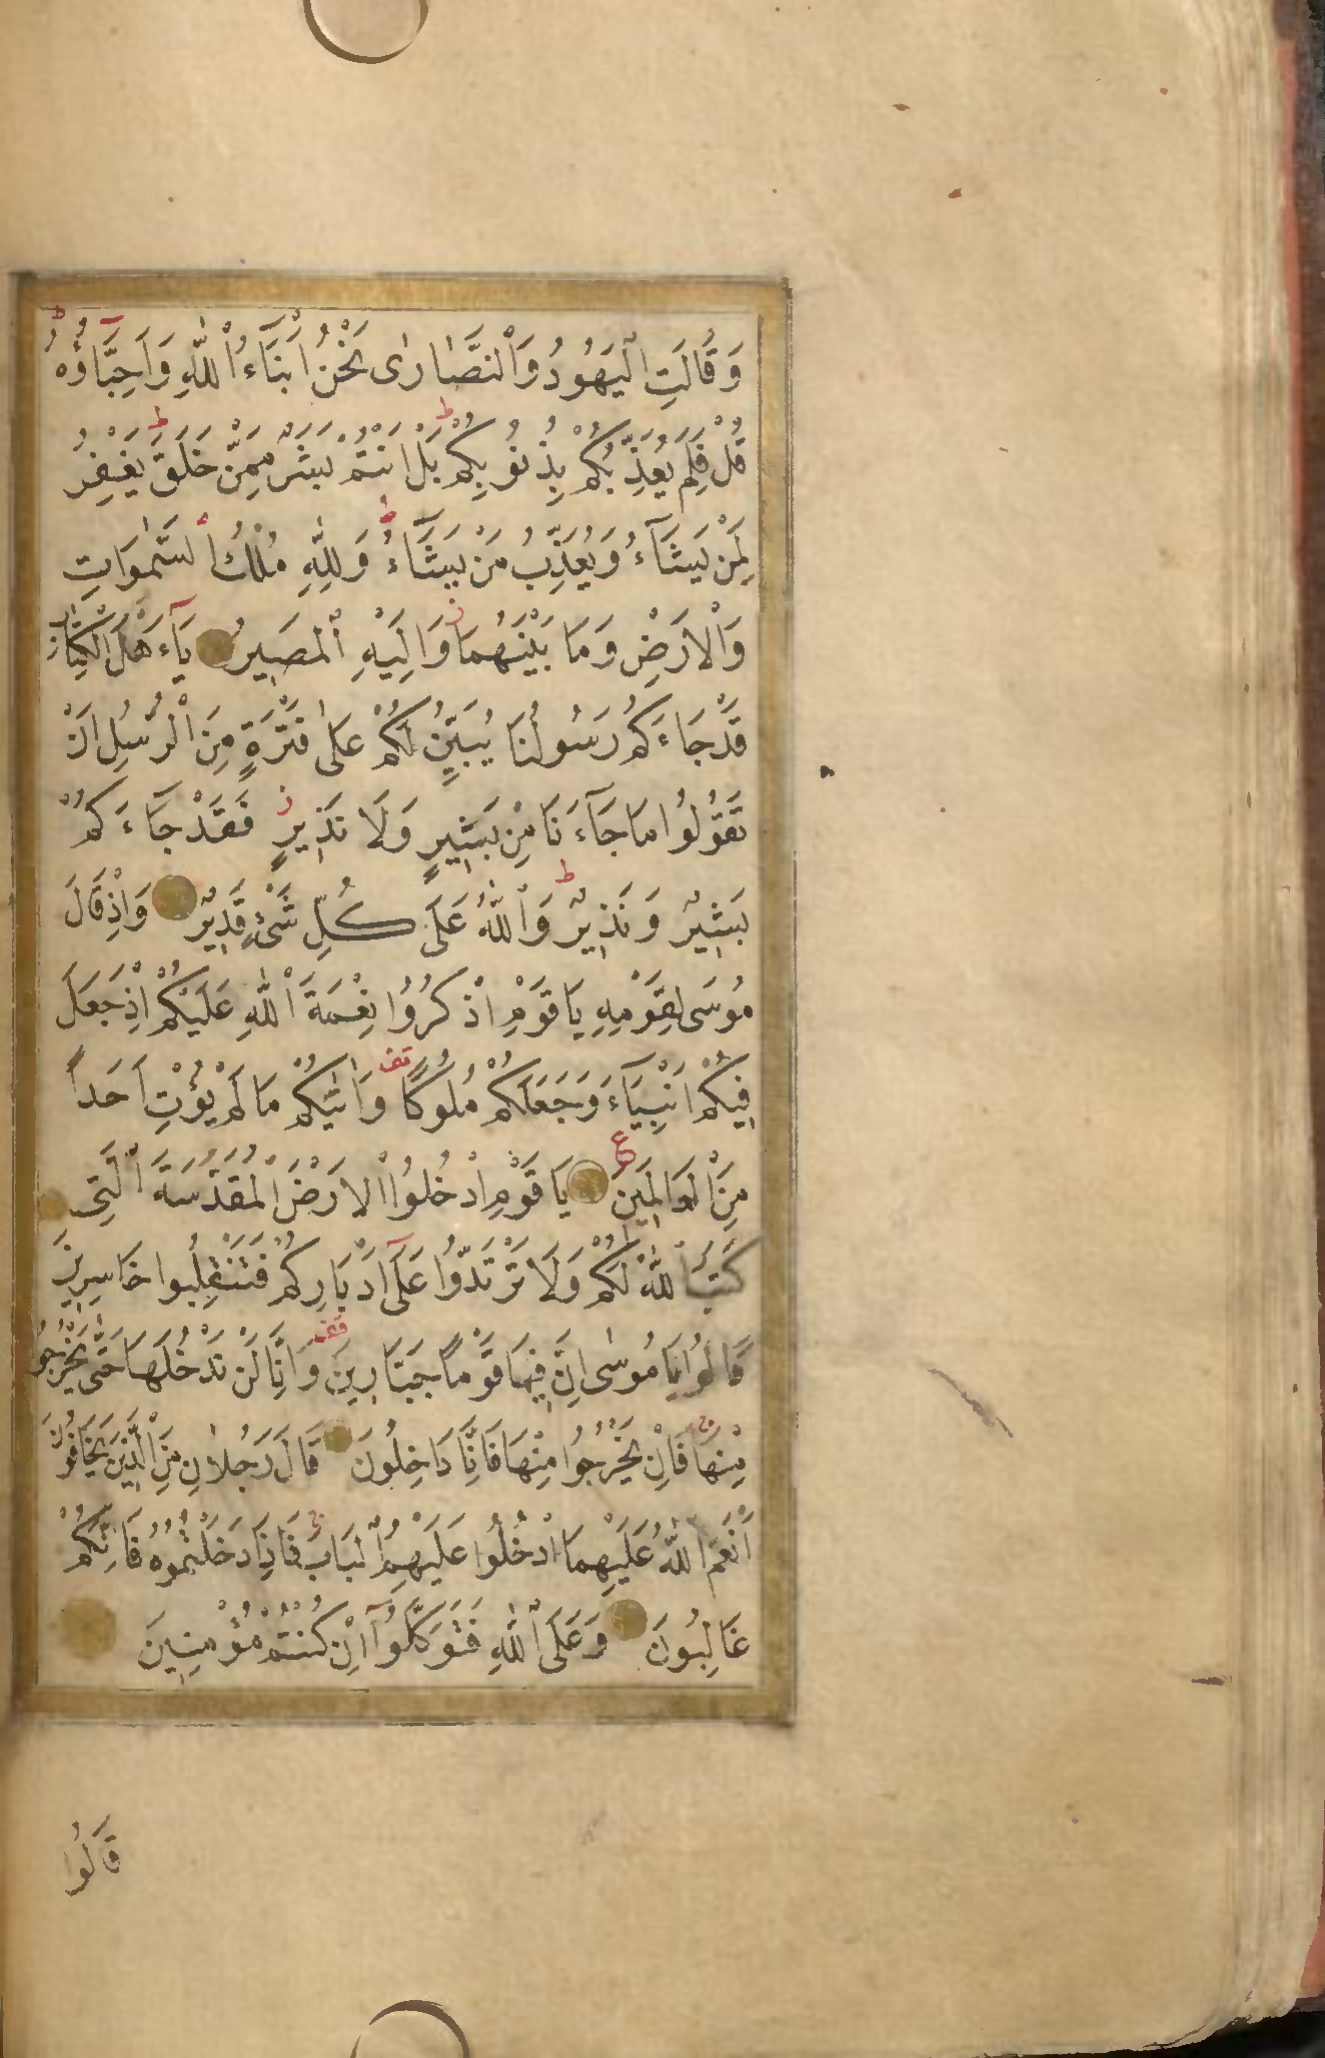 وَقَالَتِ الْيَهُودُ وَالنَّصَارٰى نَحْنُ اَبْنَاءُ اللّٰهِ وَاَحِبَّاؤُهُ
قُلْ فَلِمَ يُعَذِّبُكُمْ بِذُنُوبِكُمْ بَلْ اَنْتُمْ بَشَرٌ مِمَّنْ خَلَقَ يَغْفِرُ
لِمَنْ يَشَآءُ وَيُعَذِّبُ مَنْ يَشَآءُ وَلِلّٰهِ مُلْكُ السَّمٰوَاتِ
وَالْاَرْضِ وَمَا بَيْنَهُمَا وَاِلَيْهِ الْمَصِيرُ يَآءَهْلَ الْكِتَابِ
قَدْ جَاءَكُمْ رَسُولُنَا يُبَيِّنُ لَكُمْ عَلٰى فَتْرَةٍ مِنَ الرُّسُلِ اَنْ
تَقُولُوا مَا جَآءَنَا مِنْ بَشِيرٍ وَلَا نَذِيرٍ فَقَدْ جَآءَكُمْ
بَشِيرٌ وَنَذِيرٌ وَاللّٰهُ عَلَى كُلِّ شَىْءٍ قَدِيرٌ وَاِذْ قَالَ
مُوسَى لِقَوْمِهِ يَا قَوْمِ اذْكُرُوا نِعْمَةَ اللّٰهِ عَلَيْكُمْ اِذْ جَعَلَ
فِيكُمْ اَنْبِيَآءَ وَجَعَلَكُمْ مُلُوكًا وَاٰتٰيكُمْ مَا لَمْ يُؤْتِ اَحَداً
مِنَ الْعَالَمِينَ يَا قَوْمِ ادْخُلُوا الْاَرْضَ الْمُقَدَّسَةَ الَّتِى
كَتَبَ اللّٰهُ لَكُمْ وَلَا تَرْتَدُّوا عَلَى اَدْبَارِكُمْ فَتَنْقَلِبُوا خَاسِرِينَ
قَالُوا يَا مُوسٰى اِنَّ فِيهَا قَوْمًا جَبَّارِينَ وَاِنَّا لَنْ نَدْخُلَهَا حَتّٰى يَخْرُجُوا
مِنْهَا فَاِنْ يَخْرُجُوا مِنْهَا فَاِنَّا دَاخِلُونَ قَالَ رَجُلَانِ مِنَ الَّذِينَ يَخَافُونَ
اَنْعَمَ اللّٰهُ عَلَيْهِمَا ادْخُلُوا عَلَيْهِمُ الْبَابَ فَاِذَا دَخَلْتُمُوهُ فَاِنَّكُمْ
غَالِبُونَ وَعَلَى اللّٰهِ فَتَوَكَّلُوٓا اِنْ كُنْتُمْ مُؤْمِنِينَ
قَالُوا